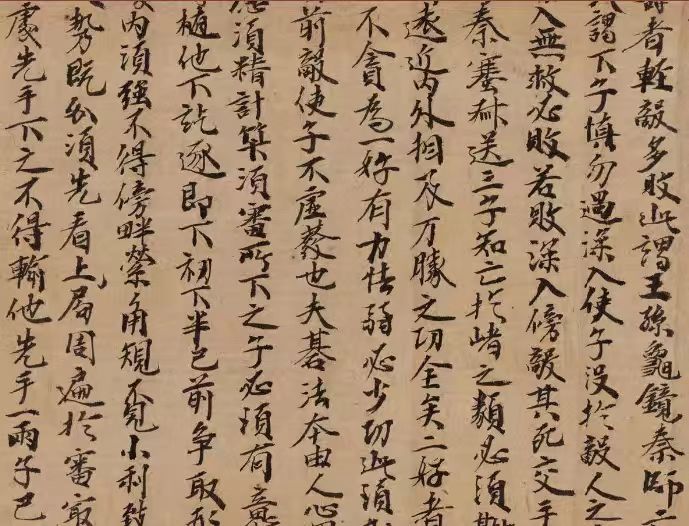 者輕敵多敗此謂王孫龜鏡秦師二
謂下子慎勿過深入使子沒於敵人之
入無救必敗若敗深入傍敵其死交手
秦塞赫送三子知亡於崤之類必須
遠近內外相及万勝之功全矣二好者
不貪為一好有力怯弱必少功此須
前敵使子不虛發也夫碁法本由人心
須精計算須審所下之子必須有意
植他下訖逐即下初下半已前爭取形
內須強不得傍畔縈角規覓小利致
勢既分須先看上局周遍於審最
處先手下之不得輸他先手一兩子已